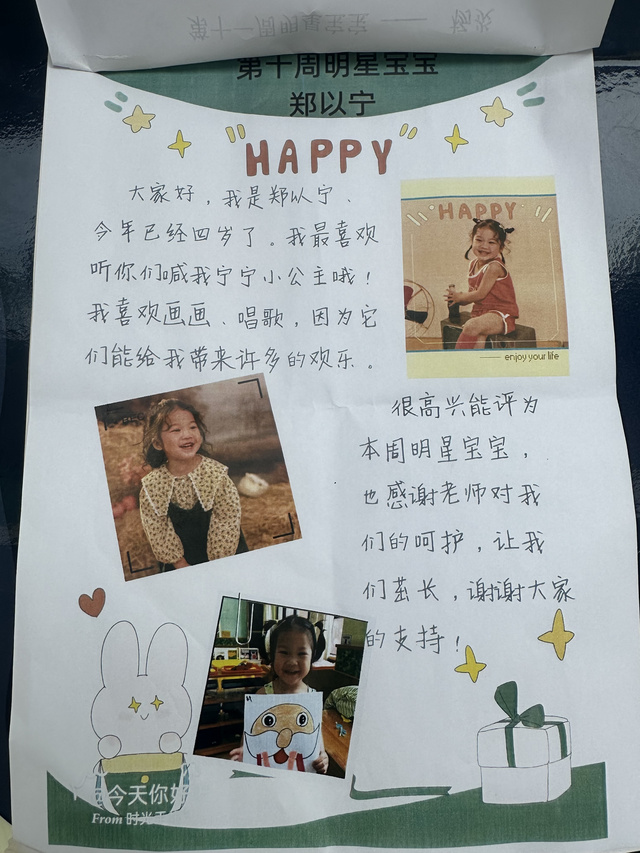 第十一周明星宝宝 ——
第十周明星宝宝
郑以宁
"HAPPY"
大家好，我是郑以宁、
今年已经四岁了。我最喜欢
听你们喊我宁宁小公主哦！
我喜欢画画、唱歌，因为它
们能给我带来许多的欢乐。
HAPPY
enjoy your life
很高兴能评为
本周明星宝宝，
也感谢老师对我
们的呵护，让我
们茁长，谢谢大家
的支持！
今天你好
From 时光